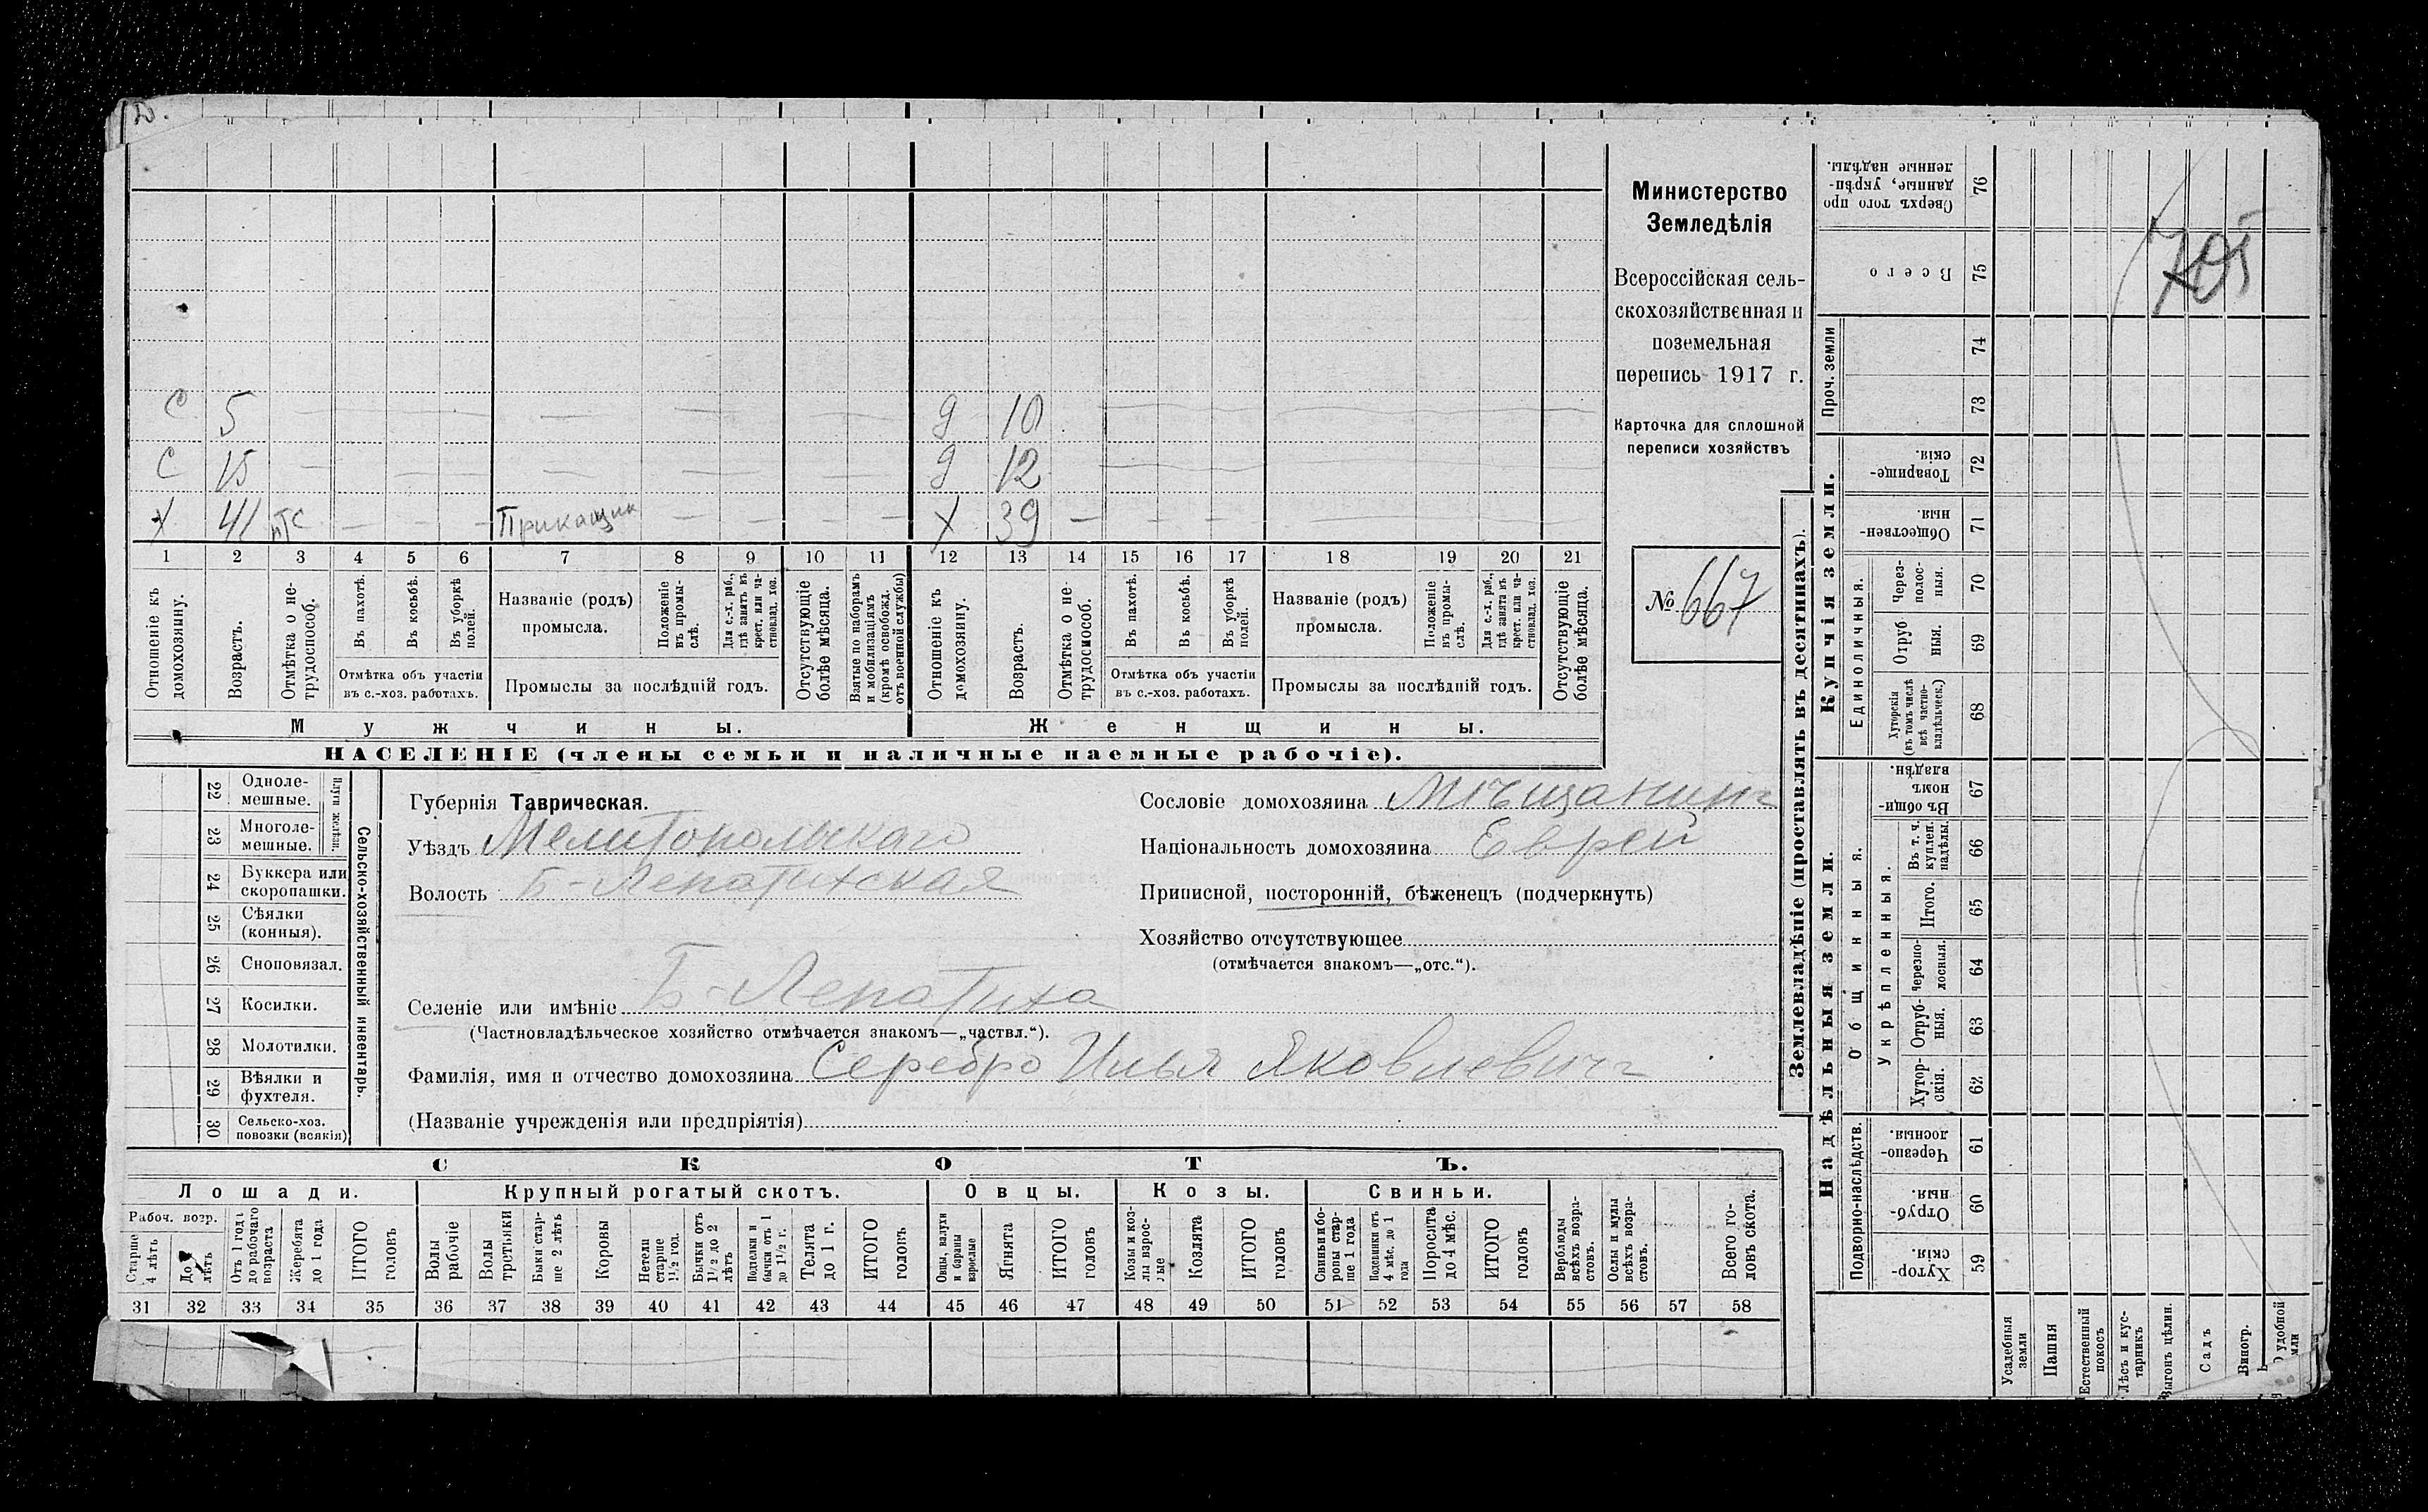 Министерство
Земледѣлія
Всероссійская сель-
скохозяйственная и
поземельная
перепись 1917 г.
Карточка для сплошной
переписи хозяйствъ
№ 667
705
С 5 д 10
С 15 д 12
Х 41 Прикащик Х 39
1 2 3 4 5 6 7 8 9 10 11 12 13 14 15 16 17 18 19 20 21
Отношеніе къ домохозяину.
Возрастъ.
Отмѣтка о не-трудоспособ.
Въ пахотѣ.
Въ косьбѣ.
Въ уборкѣ полей.
Отмѣтка объ участіи
въ с.-хоз. работахъ.
Названіе (родъ)
промысла.
Положеніе въ промы-слѣ.
Для с.-х. раб., гдѣ занятъ въ крест. или ча-стновлад. хоз.
Промыслы за послѣдній годъ.
Отсутствующіе болѣе мѣсяца.
Взятые по наборамъ и мобилизаціямъ (кромѣ освобожд. отъ военной службы)
Отношеніе къ домохозяину.
Возрастъ.
Отмѣтка о не-трудоспособ.
Въ пахотѣ.
Въ косьбѣ.
Въ уборкѣ полей.
Отмѣтка объ участіи
въ с.-хоз. работахъ.
Названіе (родъ)
промысла.
Положеніе въ промы-слѣ.
Для с.-х. раб., гдѣ занята въ крест. или ча-стновлад. хоз.
Промыслы за послѣдній годъ.
Отсутствующіе болѣе мѣсяца.
Мужчины. Женщины.
НАСЕЛЕНІЕ (члены семьи и наличные наемные рабочіе).
Сельско-хозяйственный инвентарь.
Плуги желѣзн.
22 Одноле-мешные.
23 Многоле-мешные.
24 Буккера или скоропашки.
25 Сѣялки (конныя).
26 Сноповязал.
27 Косилки.
28 Молотилки.
29 Вѣялки и фухтеля.
30 Сельско-хоз. повозки (всякія)
Губернія Таврическая.
Уѣздъ Мелитопольскаго
Волость Б-Лепатихская
Сословіе домохозяина Мѣщанинъ
Національность домохозяина Еврей
Приписной, посторонній, бѣженецъ (подчеркнуть)
Хозяйство отсутствующее
(отмѣчается знакомъ—„отс.“).
Селеніе или имѣніе Б-Лепатиха
(Частновладѣльческое хозяйство отмѣчается знакомъ—„частвл.“).
Фамилія, имя и отчество домохозяина Серебро Илья Яковлевичъ
(Названіе учрежденія или предпріятія)
СКОТЪ.
Лошади. Крупный рогатый скотъ. Овцы. Козы. Свиньи.
Рабоч. возр.
Старше 4 лѣтъ
До лѣтъ
Отъ 1 года до рабочаго возраста
Жеребята до 1 года
ИТОГО головъ
Волы рабочіе
Волы третьяки
Быки стар-ше 2 лѣтъ
Коровы
Нетели старше 1½ год.
Бычки отъ 1½ до 2 лѣтъ
Подтелки и бычки отъ 1 до 1½ г.
Телята до 1 г.
ИТОГО головъ
Овцы, валухи и бараны взрослые
Ягнята
ИТОГО головъ
Козы и коз-лы взрос-лые
Козлята
ИТОГО головъ
Свиньи и бо-ровы стар-ше 1 года
Подсвинки отъ 4 мѣс. до 1 года
Поросята до 4 мѣс.
ИТОГО головъ
Верблюды всѣхъ возра-стовъ.
Ослы и мулы всѣхъ возра-стовъ.
Всего го-ловъ скота.
31 32 33 34 35 36 37 38 39 40 41 42 43 44 45 46 47 48 49 50 51 52 53 54 55 56 57 58
Землевладѣніе (проставлять въ десятинахъ).
Надѣльныя земли. Купчія земли. Проч. земли
Подворно-наслѣдств.
Общинныя.
Укрѣпленныя.
Единоличныя.
59 Хутор-скія.
60 Отруб-ныя.
61 Черезпо-лосныя.
62 Хутор-скія.
63 Отруб-ныя.
64 Черезпо-лосныя.
65 Итого.
66 Въ т. ч. куплен. надѣлы.
67 Въ общи-номъ владѣн.
68 Хуторскія (въ томъ числѣ всѣ частно-владѣльческ.)
69 Отруб ныя.
70 Через-полос-ныя.
71 Обществен-ныя.
72 Товарище-скія.
73
74
75 Всего
76 Сверхъ того про данные, укрѣп-ленные надѣлы.
Усадебныя земли
Пашня
Естественный покосъ
Лѣсъ и кус-тарникъ
Выгонъ цѣлин.
Садъ
Виногр.
удобной